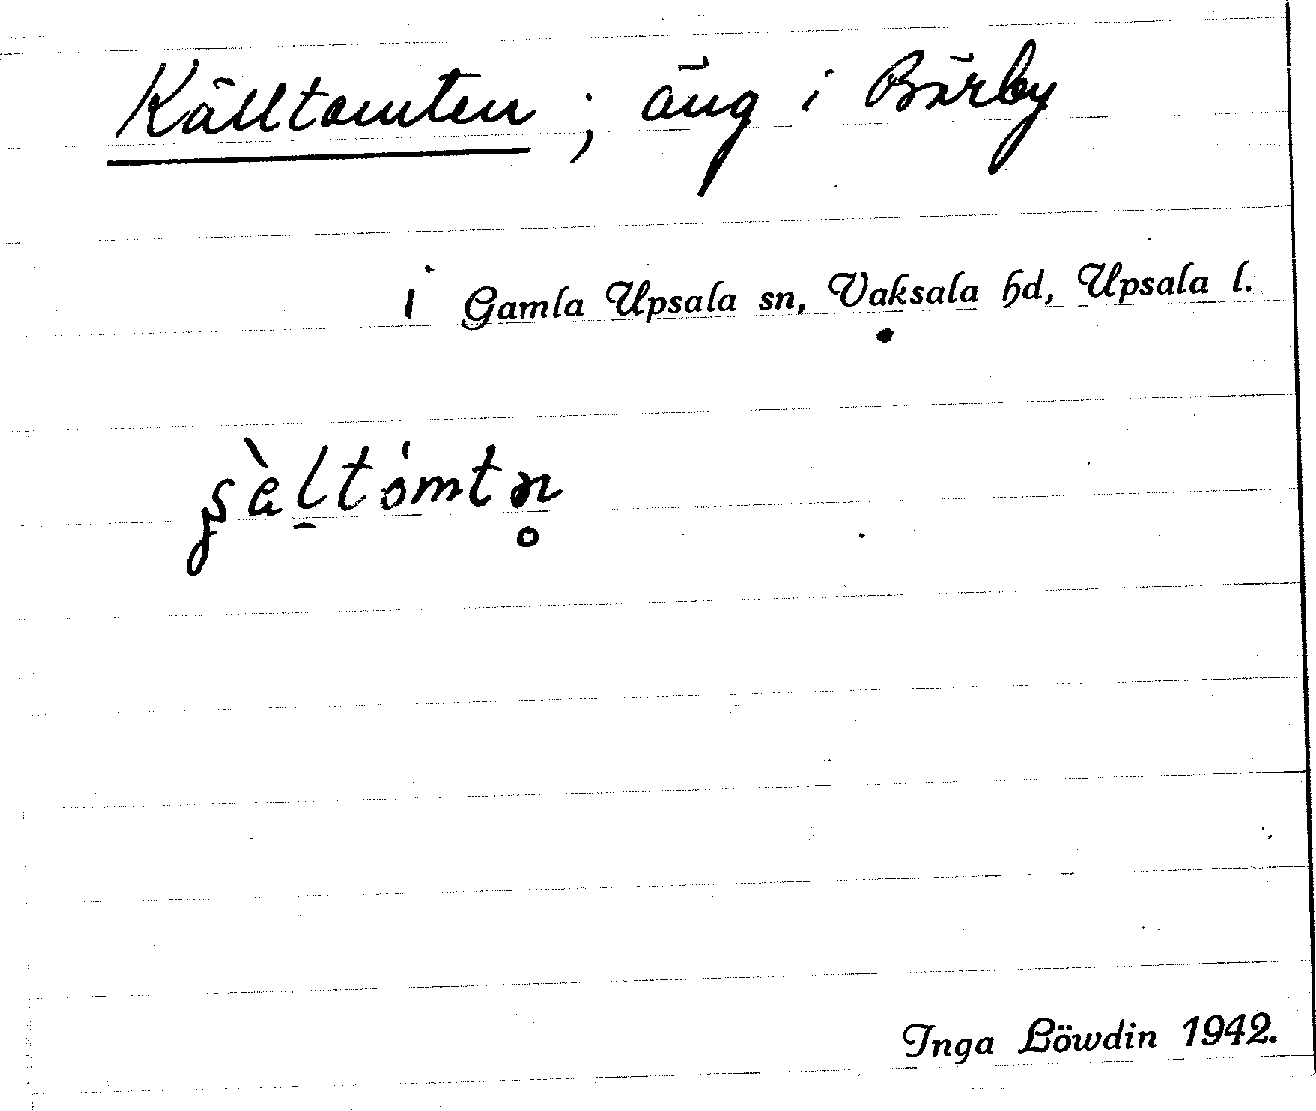 Källtomten; äng i Bärby
i Gamla Upsala sn, Vaksala hd, Upsala l.
Inga Löwdin 1942.